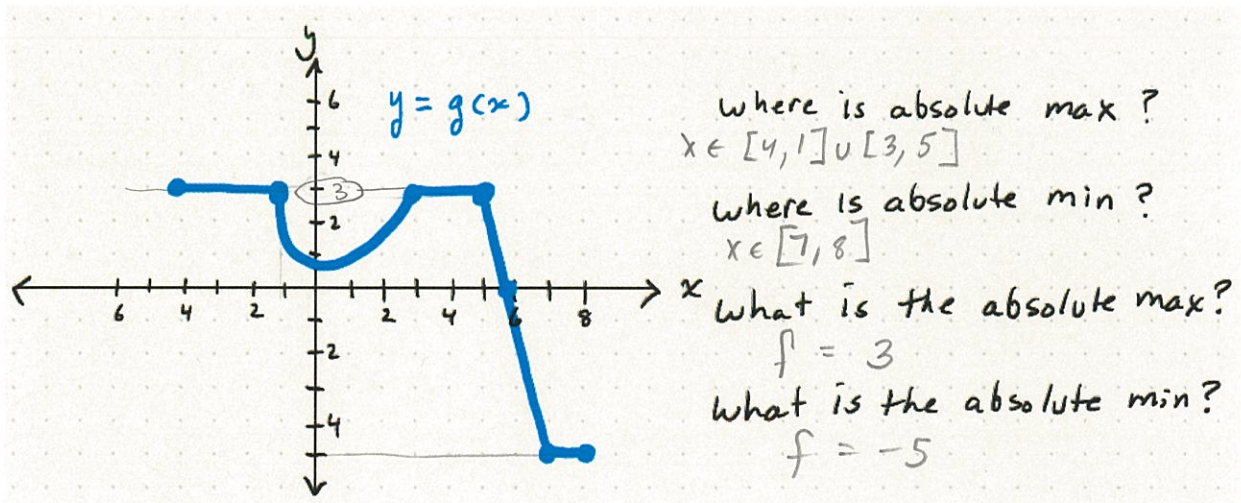 y
6
y = g(x)
4
3
2
6 4 2 2 4 6 8 x
2
4
where is absolute max ?
x ∈ [4,1] ∪ [3,5]
where is absolute min ?
x ∈ [7,8]
what is the absolute max?
f = 3
what is the absolute min?
f = -5